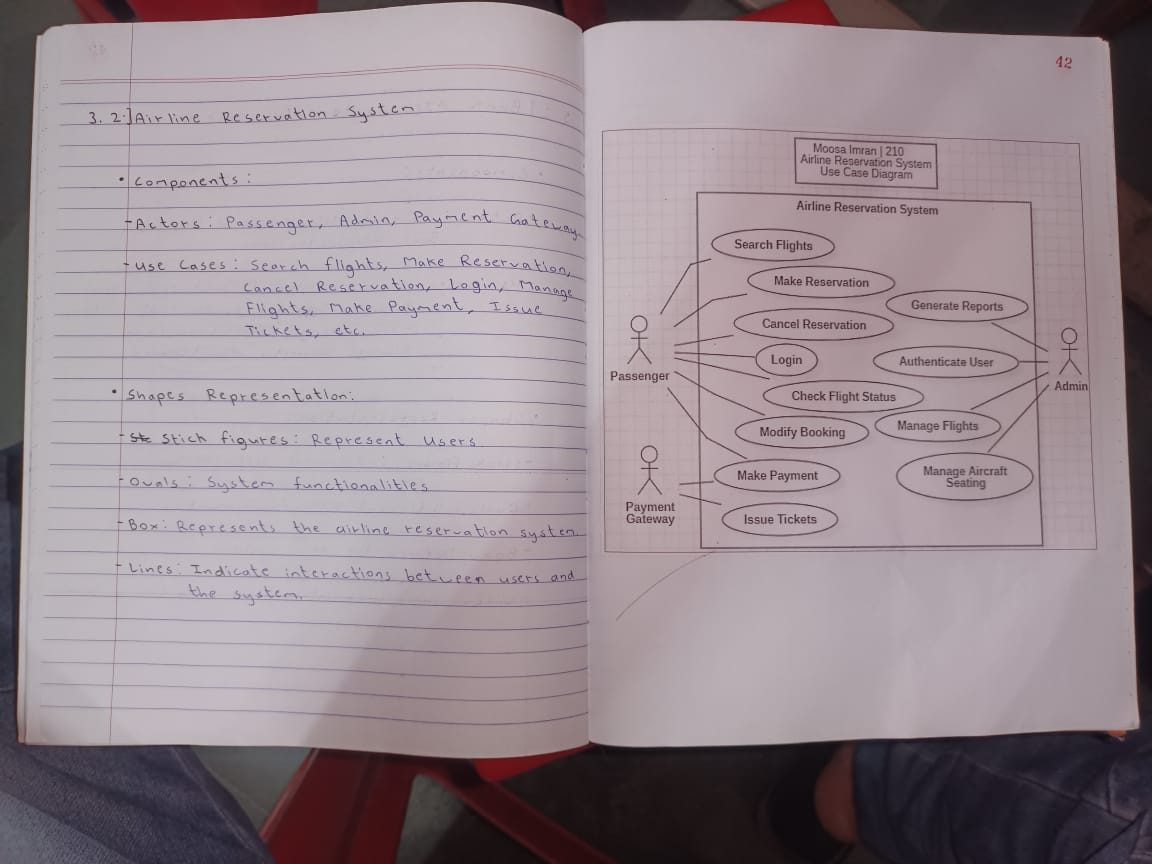 3. 2.] Airline Reservation System
• Components:
- Actors: Passenger, Admin, Payment Gateway.
- Use Cases: Search flights, Make Reservation,
Cancel Reservation, Login, Manage
Flights, Make Payment, Issue
Tickets, etc.
• Shapes Representation:
- Stick figures: Represent Users
- Ovals: System functionalities
- Box: Represents the airline reservation system
- Lines: Indicate interactions between users and
the system.
42
Moosa Imran | 210
Airline Reservation System
Use Case Diagram
Airline Reservation System
Search Flights
Make Reservation
Generate Reports
Cancel Reservation
Login
Authenticate User
Passenger
Admin
Check Flight Status
Modify Booking
Manage Flights
Make Payment
Manage Aircraft
Seating
Payment
Gateway
Issue Tickets